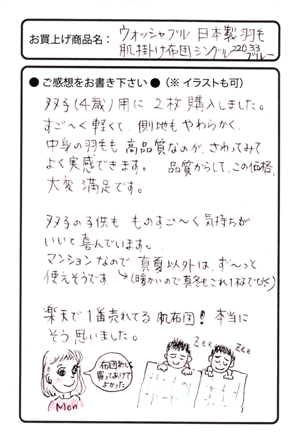 お買上げ商品名：ウォッシャブル 日本製 羽毛
肌掛け布団シングル 22033 ブルー
●ご感想をお書き下さい●（※イラストも可）
双子（4歳）用に2枚購入しました。
すご〜く軽くて、側地もやわらかく、
中身の羽毛も高品質なのが、さわってみて
よく実感できます。品質からして、この価格、
大変満足です。
双子の子供も ものすご〜く気持ちが
いいと喜んでいます。
マンションなので真夏以外は、ず〜っと
使えそうです（暖かいので真冬もこれ1枚で
楽天で1番売れてる肌布団！本当に
そう思いました。
布団
買ってあげて
よかった
Mom
ZZZ
ZZZ